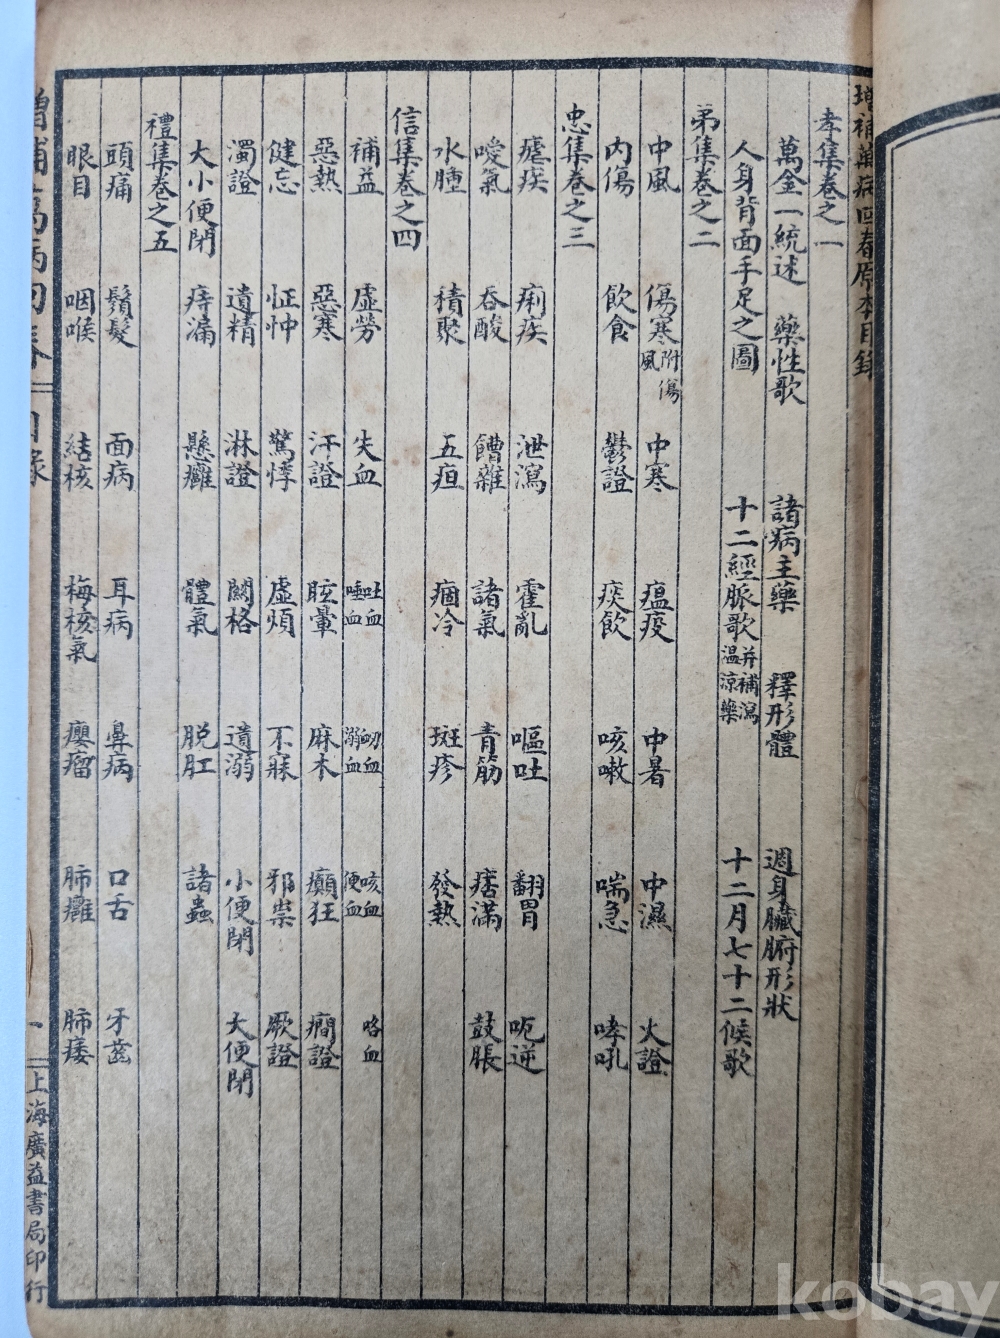 增補萬病回春原本目錄
孝集卷之一
萬金一統述 藥性歌 諸病主藥 釋形體 週身臟腑形狀
人身背面手足之圖 十二經脈歌 并補瀉溫涼藥 十二月七十二候歌
弟集卷之二
中風 傷寒 附傷風 中寒 瘟疫 中暑 中濕 火證
內傷 飲食 鬱證 痰飲 咳嗽 喘急 哮吼
忠集卷之三
瘧疾 痢疾 泄瀉 霍亂 嘔吐 翻胃 呃逆
噯氣 吞酸 饋雜 諸氣 青筋 痞滿 鼓脹
水腫 積聚 五疸 痼冷 斑疹 發熱
信集卷之四
補益 虛勞 失血 吐血 唾血 衂血 溺血 咳血 便血 咯血
惡熱 惡寒 汗證 眩暈 麻木 癲狂 癇證
健忘 怔忡 驚悸 虛煩 不寐 邪祟 厥證
濁證 遺精 淋證 關格 遺溺 小便閉 大便閉
大小便閉 痔漏 懸癰 體氣 脫肛 諸蟲
禮集卷之五
頭痛 鬚髮 面病 耳病 鼻病 口舌 牙齒
眼目 咽喉 結核 梅核氣 癭瘤 肺癰 肺痿
增補萬病回春 目錄 一 上海廣益書局印行
kobay